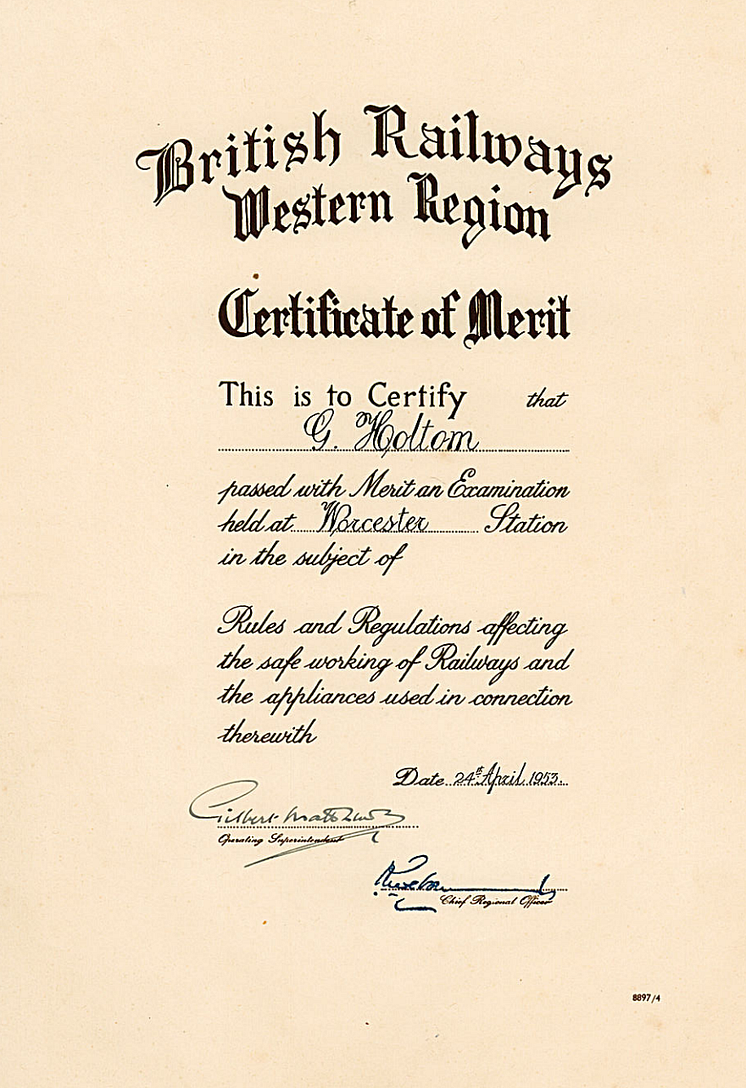 British Railways
Western Region
Certificate of Merit
This is to Certify that
G. Holtom
passed with Merit an Examination
held at Worcester Station
in the subject of
Rules and Regulations affecting
the safe working of Railways and
the appliances used in connection
therewith
Date 24th April 1953.
Gilbert Matthews
Operating Superintendent
Chief Regional Officer
8897/4